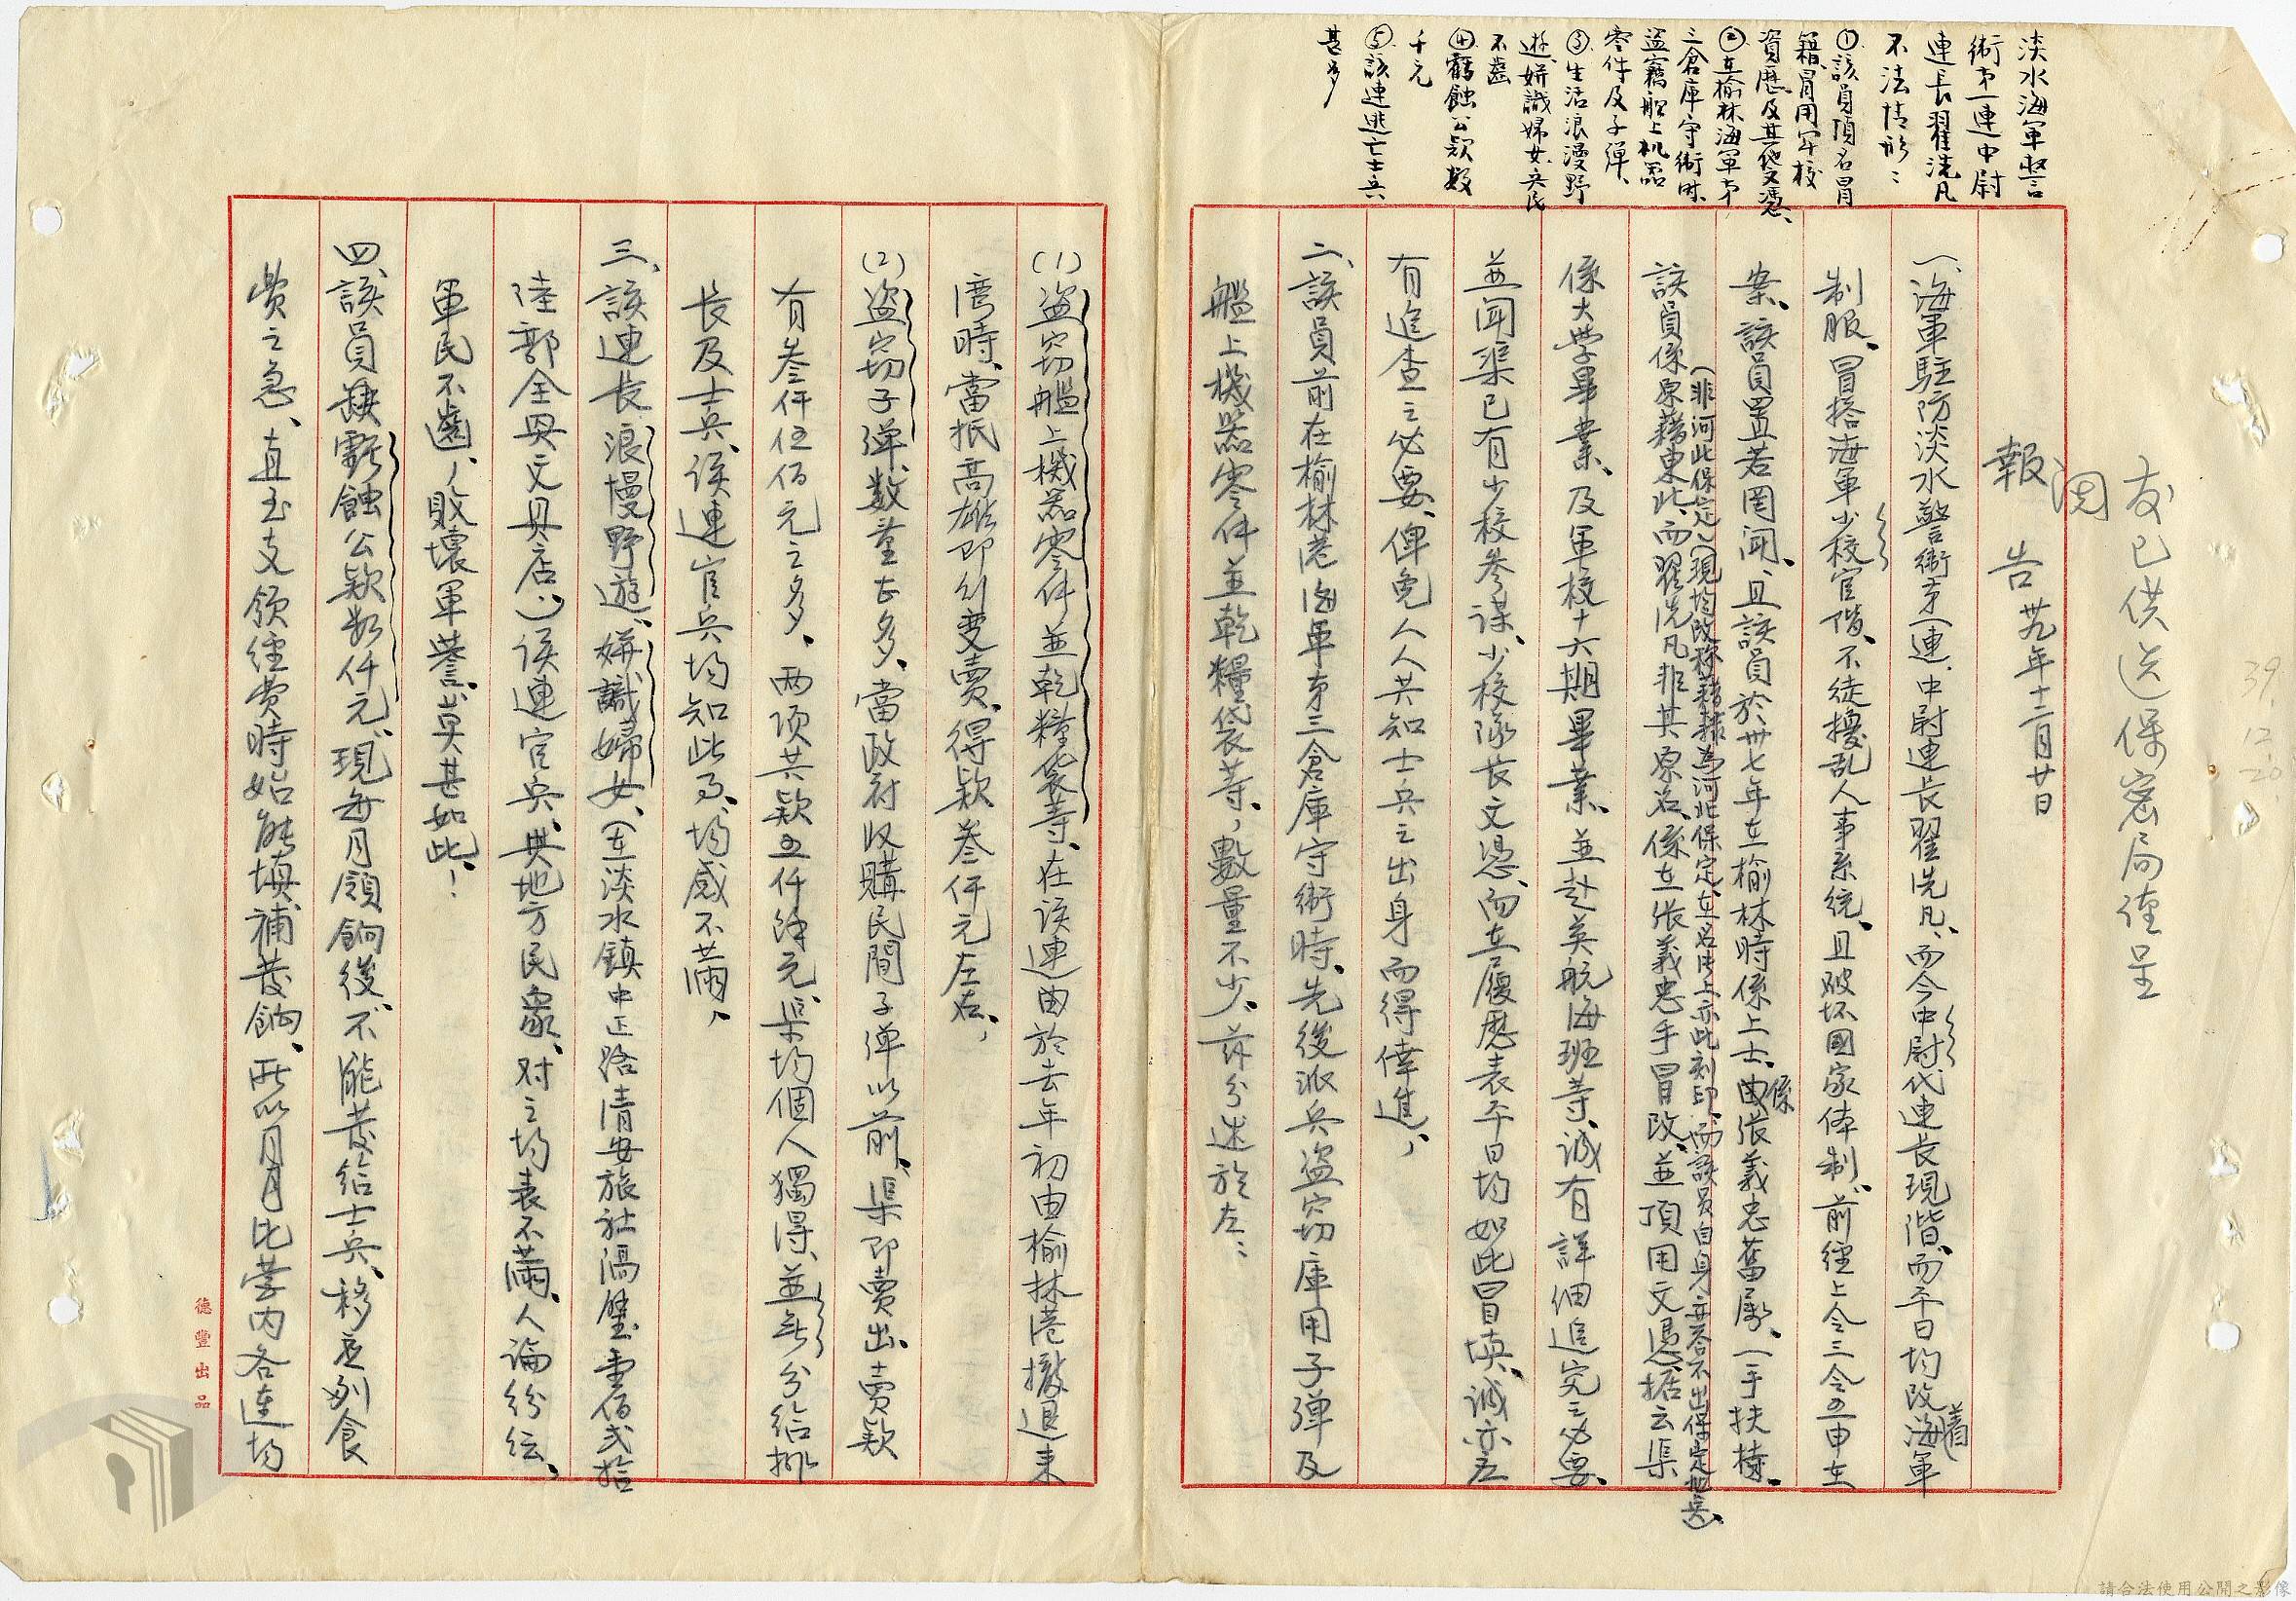 淡水海軍警
衛第一連中尉
連長翟洗凡
不法情形：
①該員頂名冒
籍冒用军校
資歷及其他文憑、
②在榆林海軍第
三倉庫守衛时、
盜竊船上机器
零件及子弹、
③生活浪漫野
遊、姘識婦女、兵民
不齒
④虧蝕公款数
千元
⑤該連逃亡士兵
甚多
已供送保密局謹呈
報告 卅九年十二月廿日
39.12.20
一、海軍駐防淡水警衛第一連、中尉連長翟洗凡、而今中尉代連長現階、而平日均改着海軍
制服、冒搭海軍少校官階、不徒擾乱人事系統、且破坏國家体制、前經上令三令五申在
案、該員置若罔聞、且該員於卅七年在榆林時係上士、係由張義忠舊承、一手扶捧、
（非河北保定）（現均改称籍貫為河北保定、在名片上亦此刻印、而該員自身亦否不出保定地兵）、
該員係原籍東北、而翟洗凡非其原名、係在張義忠手冒改、並頂用文憑、據云渠
係大學畢業、及軍校十六期畢業、並赴英航海班等、誠有詳细追究之必要、
並聞渠已有少校参谋、少校隊长文憑、而在履歷表平日均如此冒填、誠亦应
有追查之必要、俾免人人共知士兵之出身而得倖進，
二、該員前在榆林港海軍第三倉庫守衛時、先後派兵盜窃庫用子弹及
艦上機器零件並乾糧袋等，數量不少、茲分述於左：
(1)盜窃艦上機器零件並乾糧袋等、在该連由於去年初由榆林港撤退来
湾時、當抵高雄即行变賣、得款叁仟元左右，
(2)盜窃子弹数量甚多、當政府收購民間子弹以前、渠即賣出、賣款
有叁仟伍佰元之多、两项共款五仟餘元、渠均個人獨得、並無分给排
长及士兵、该連官兵均知此事、均感不滿，
三、該連長浪慢野遊、姘識婦女、（在淡水鎮中正路清安旅社隔壁壹佰弍拾
陸部全興文具店）该連官兵、與地方民衆、对之均表不滿、人論纷纭、
軍民不齒，敗壞軍譽、莫甚如此！
四、該員虧蝕公款数仟元、現每月領餉後、不能發给士兵、移应別食
費之急、直至支领经费時始能填補發餉、所以月月比营内各連均
德豐出品
請合法使用公開之影像